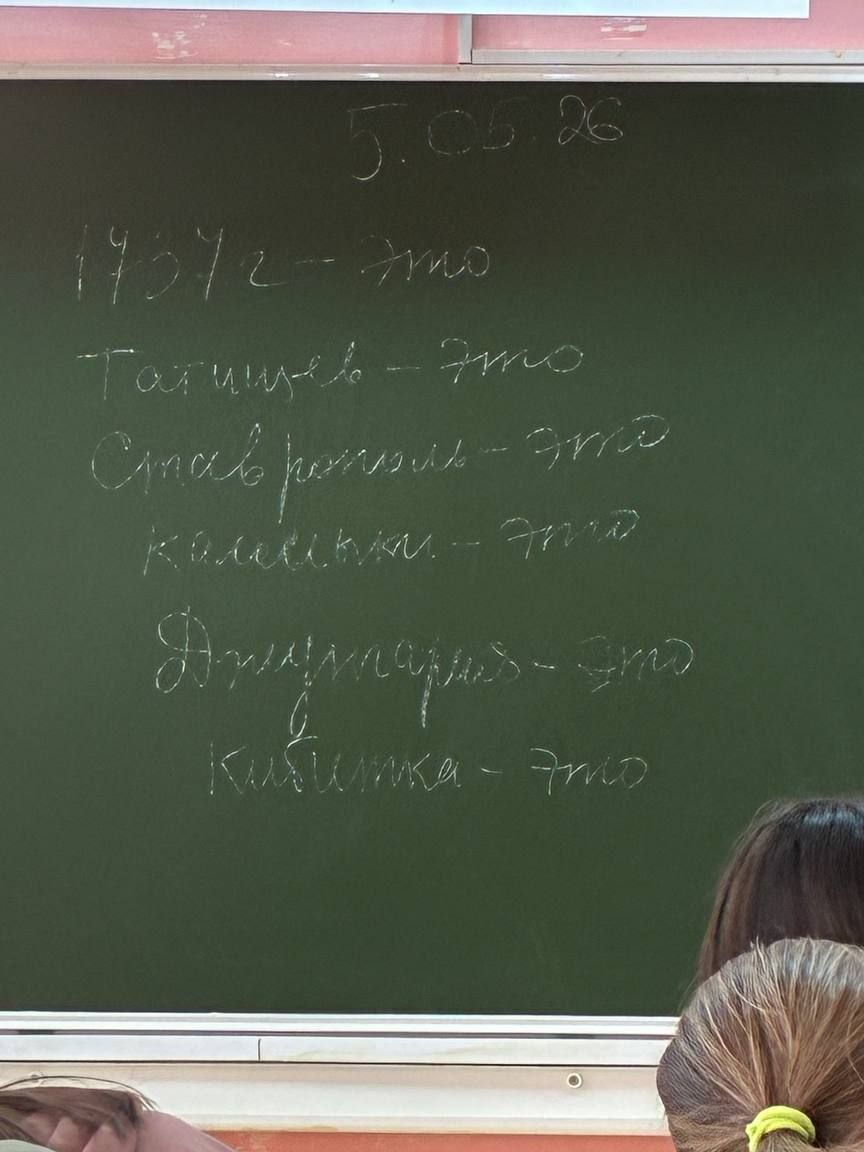 5.05.26
1737 г - это
Татищев - это
Ставрополь - это
калмыки - это
Джунгария - это
Кибитка - это